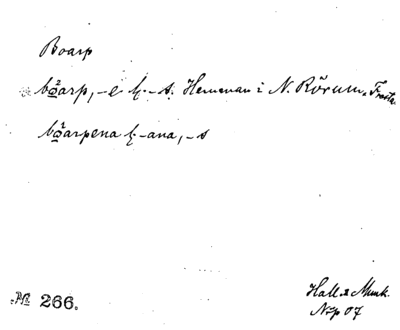 Boarp
bo̰arp, -e l. -s. Hemman i N. Rörum, Frosta
bo̰arpena l. -ana, -s
№ 266.
Hall. & Munk.
N:p 07